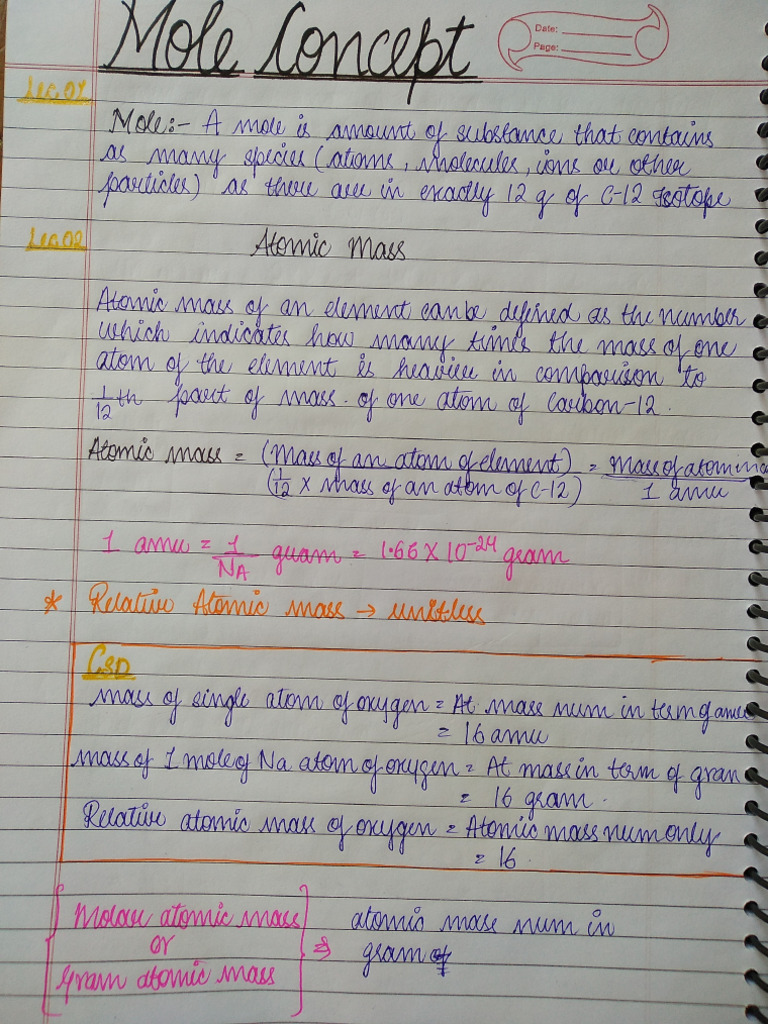 Mole Concept
Date:
Page:
Lec.01
Mole:- A mole is amount of substance that contains
as many species (atoms, molecules, ions or other
particles) as there are in exactly 12 g of C-12 Isotope
Lec.02
Atomic Mass
Atomic mass of an element canbe defined as the number
which indicates how many times the mass of one
atom of the element is heavier in comparison to
1/12 th part of mass. of one atom of Carbon-12.
Atomic mass = (Mass of an atom of element) / (1/12 x mass of an atom of C-12) = Mass of atom in a / 1 amu
1 amu = 1/NA gram = 1.66 X 10^-24 gram
* Relative Atomic mass → unitless
mass of single atom of oxygen = At mass num in term of amu
= 16 amu
mass of 1 mole of Na atom of oxygen = At mass in term of gram
= 16 gram.
Relative atomic mass of oxygen = Atomic mass num only
= 16.
Molar atomic mass
or
Gram atomic mass
⇒ atomic mass num in
gram